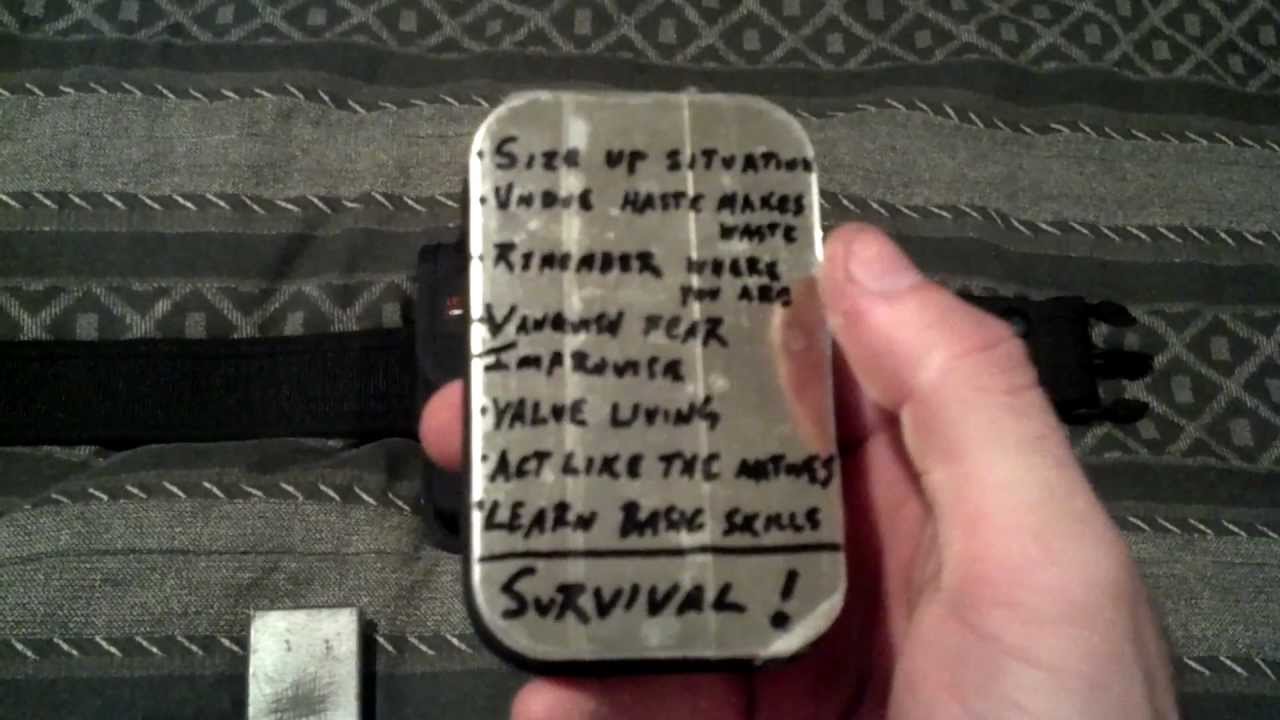 · SIZE UP SITUATION
· UNDUE HASTE MAKES
WASTE
· REMEMBER WHERE
YOU ARE
VANQUISH FEAR
IMPROVISE
· VALUE LIVING
· ACT LIKE THE NATIVES
· LEARN BASIC SKILLS
SURVIVAL!